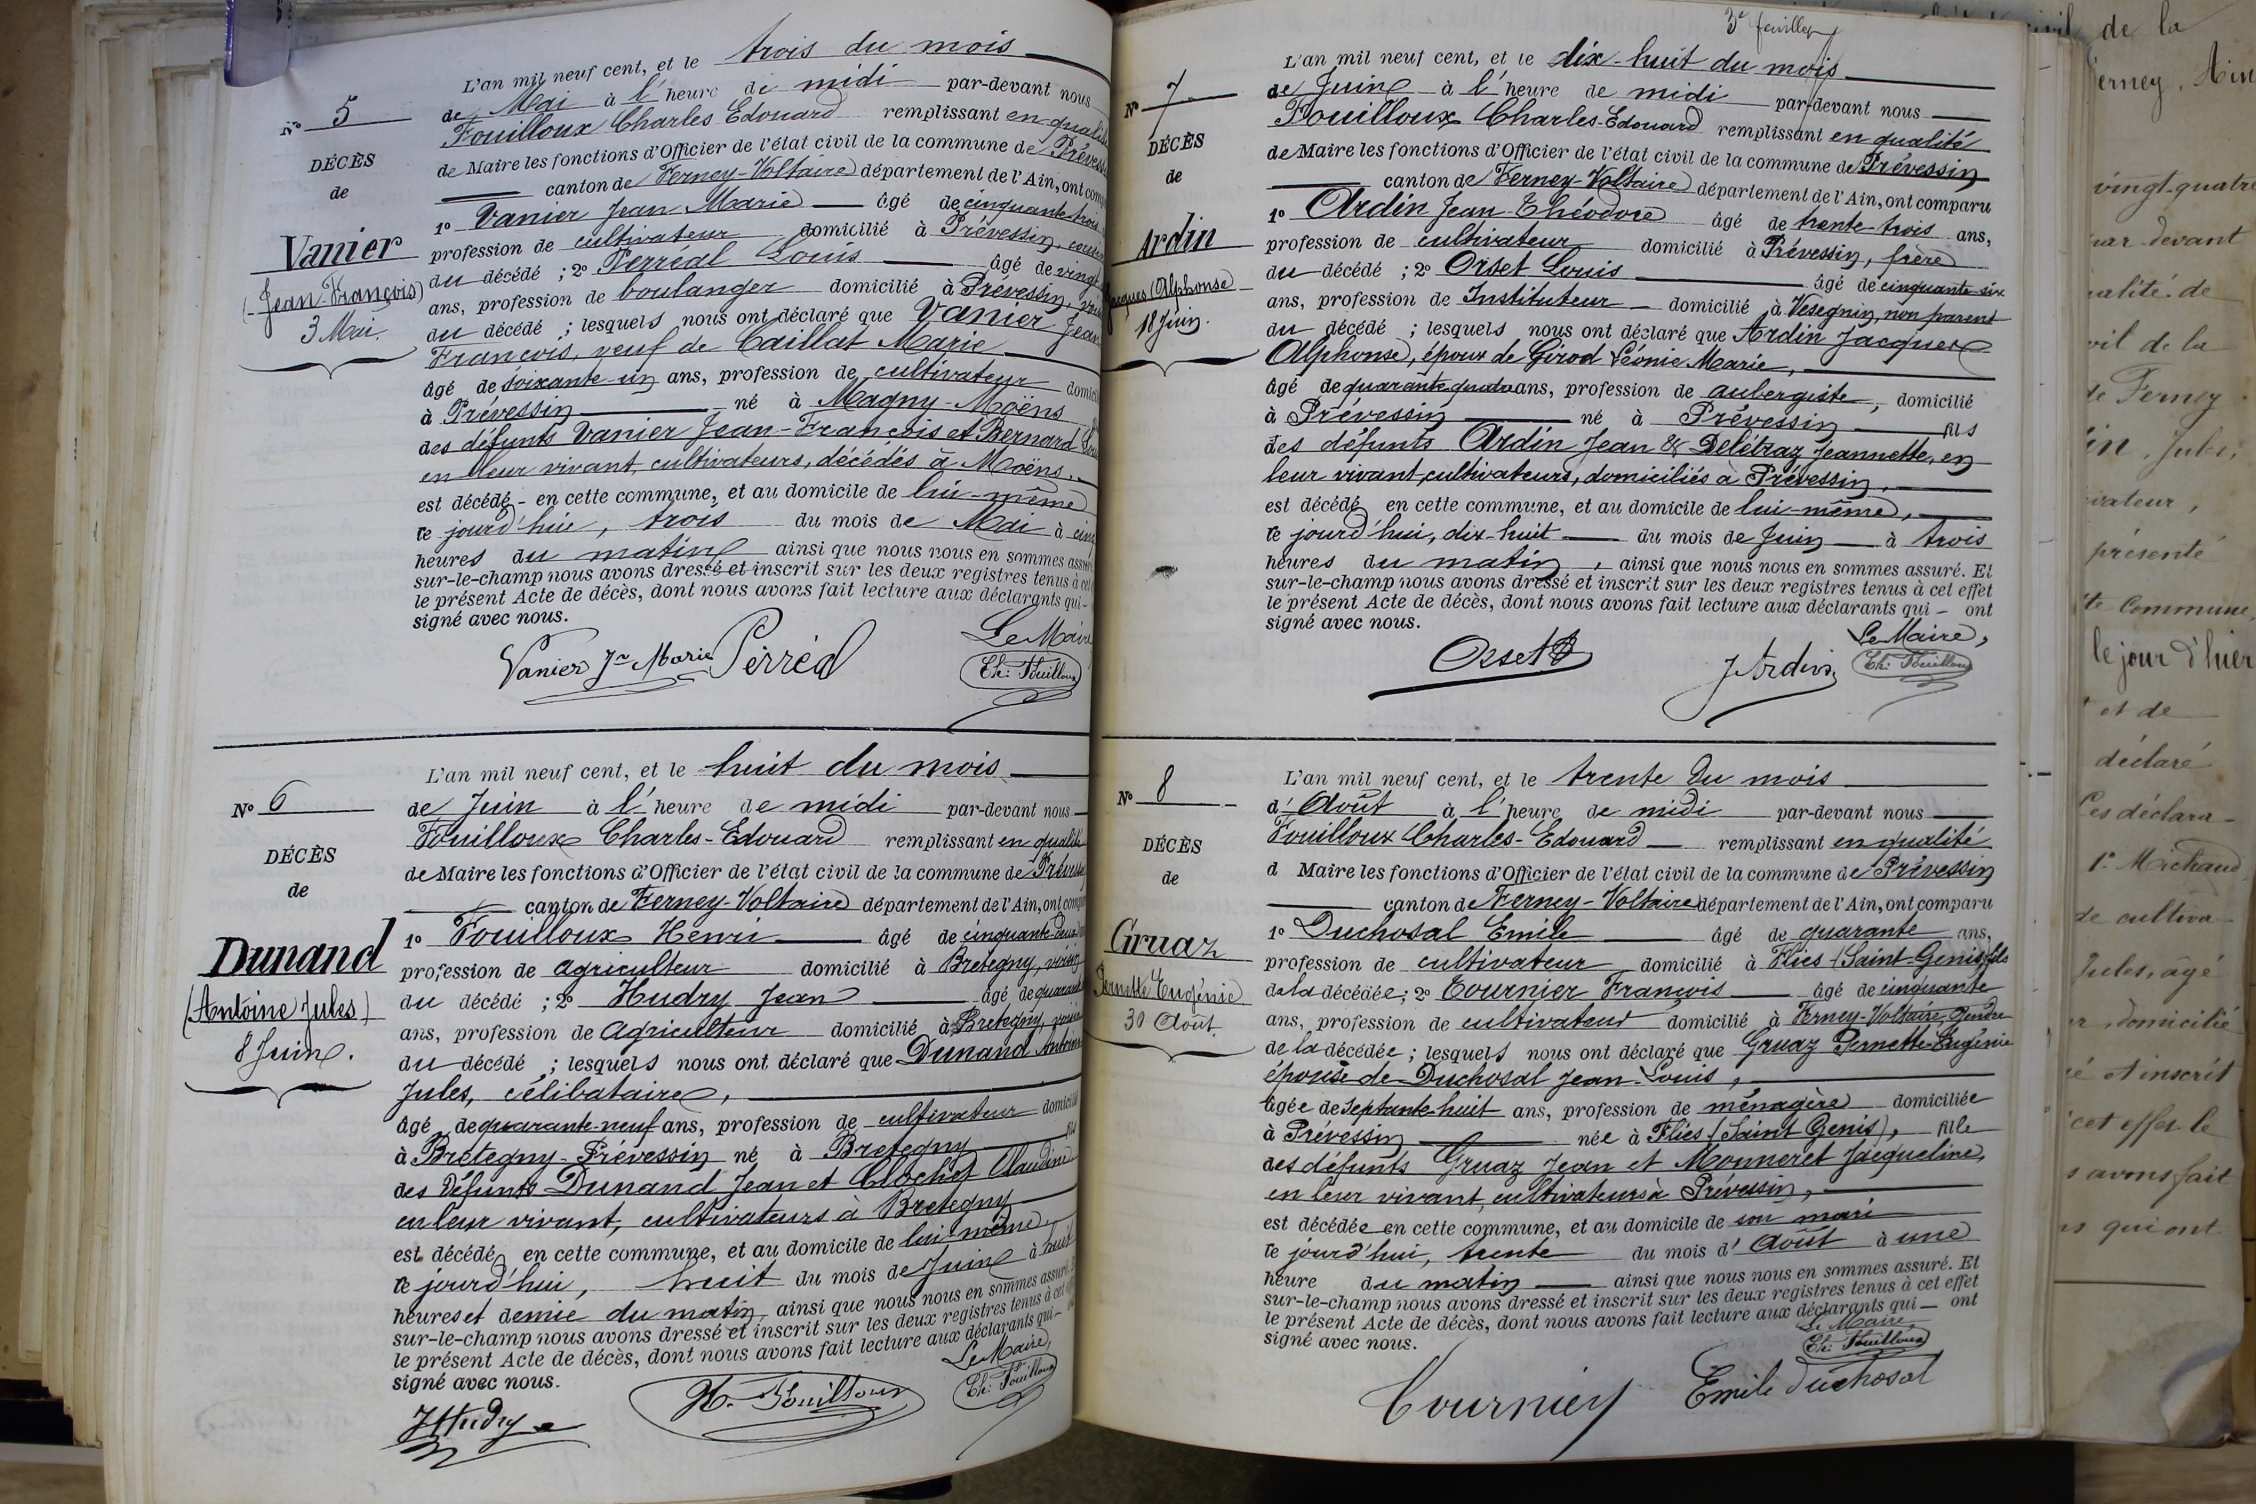 N° 5
DÉCÈS
de
Vanier
(Jean-François)
3 Mai.
L'an mil neuf cent, et le trois du mois
de Mai à l'heure de midi par-devant nous
Fouilloux Charles Edouard remplissant en qualité
de Maire les fonctions d'Officier de l'état civil de la commune de Prévessin
canton de Ferney-Voltaire département de l'Ain, ont comp
1° Vanier Jean Marie âgé de cinquante-trois
profession de cultivateur domicilié à Prévessin, cousin
du décédé ; 2° Perréal Louis âgé de vingt
ans, profession de boulanger domicilié à Prévessin,
du décédé ; lesquels nous ont déclaré que Vanier Jean
François, veuf de Caillat Marie
âgé de soixante-un ans, profession de cultivateur domicil
à Prévessin né à Magny-Moëns
des défunts Vanier Jean-François et Bernard
en leur vivant, cultivateurs, décédés à Moëns.
est décédé - en cette commune, et au domicile de lui-même
ce jourd'hui, trois du mois de Mai à cinq
heures du matin ainsi que nous nous en sommes assuré
sur-le-champ nous avons dressé et inscrit sur les deux registres tenus à cet
le présent Acte de décès, dont nous avons fait lecture aux déclarants qui -
signé avec nous.
Le Maire
Vanier Jn Marie Perréal Ch: Fouilloux
N° 6
DÉCÈS
de
Dunand
(Antoine Jules)
8 Juin.
L'an mil neuf cent, et le huit du mois
de Juin à l'heure de midi par-devant nous
Fouilloux Charles-Edouard remplissant en qualité
de Maire les fonctions d'Officier de l'état civil de la commune de Prévessin
canton de Ferney-Voltaire département de l'Ain, ont compa
1° Fouilloux Henri âgé de cinquante-deux
profession de agriculteur domicilié à Bretegny, voisin
du décédé ; 2° Hudry Jean âgé de quarante
ans, profession de agriculteur domicilié à Bretegny, voisin
du décédé ; lesquels nous ont déclaré que Dunand Antoine
Jules, célibataire,
âgé de quarante-neuf ans, profession de cultivateur domicilié
à Bretegny-Prévessin né à Bretegny fils
des défunts Dunand Jean et Clochet Claudine
en leur vivant, cultivateurs à Bretegny
est décédé en cette commune, et au domicile de lui-même
ce jourd'hui, huit du mois de Juin à huit
heures et demie du matin, ainsi que nous nous en sommes assuré.
sur-le-champ nous avons dressé et inscrit sur les deux registres tenus à cet
le présent Acte de décès, dont nous avons fait lecture aux déclarants qui -
signé avec nous.
Le Maire,
J Hudry H. Fouilloux Ch: Fouilloux
3e feuillet
N° 7
DÉCÈS
de
Ardin
Jacques (Alphonse)
18 Juin.
L'an mil neuf cent, et le dix-huit du mois
de Juin à l'heure de midi par-devant nous
Fouilloux Charles-Edouard remplissant en qualité
de Maire les fonctions d'Officier de l'état civil de la commune de Prévessin
canton de Ferney-Voltaire département de l'Ain, ont comparu
1° Ardin Jean-Théodore âgé de trente-trois ans,
profession de cultivateur domicilié à Prévessin, frère
du décédé ; 2° Orset Louis âgé de cinquante-six
ans, profession de Instituteur domicilié à Vesegnin, non parent
du décédé ; lesquels nous ont déclaré que Ardin Jacques
Alphonse, époux de Girod Léonie Marie,
âgé de quarante quatre ans, profession de aubergiste, domicilié
à Prévessin né à Prévessin fils
des défunts Ardin Jean & Delétraz Jeannette, en
leur vivant, cultivateurs, domiciliés à Prévessin,
est décédé en cette commune, et au domicile de lui-même,
ce jourd'hui, dix-huit du mois de Juin à trois
heures du matin, ainsi que nous nous en sommes assuré. Et
sur-le-champ nous avons dressé et inscrit sur les deux registres tenus à cet effet
le présent Acte de décès, dont nous avons fait lecture aux déclarants qui - ont
signé avec nous.
Le Maire,
Orset J. Ardin Ch: Fouilloux
N° 8
DÉCÈS
de
Gruaz
Pernette Eugénie
30 Août.
L'an mil neuf cent, et le trente du mois
d'Août à l'heure de midi par-devant nous
Fouilloux Charles-Edouard remplissant en qualité
d Maire les fonctions d'Officier de l'état civil de la commune de Prévessin
canton de Ferney-Voltaire département de l'Ain, ont comparu
1° Duchosal Emile âgé de quarante ans,
profession de cultivateur domicilié à Flies (Saint-Genis) fils
de la décédée ; 2° Tournier François âgé de cinquante
ans, profession de cultivateur domicilié à Ferney-Voltaire, Gendre
de la décédée ; lesquels nous ont déclaré que Gruaz Pernette-Eugénie
épouse de Duchosal Jean-Louis,
âgée de septante-huit ans, profession de ménagère domiciliée
à Prévessin née à Flies (Saint Genis), fille
des défunts Gruaz Jean et Monneret Jacqueline,
en leur vivant, cultivateurs à Prévessin,
est décédée en cette commune, et au domicile de son mari
ce jourd'hui, trente du mois d'Août à une
heure du matin ainsi que nous nous en sommes assuré. Et
sur-le-champ nous avons dressé et inscrit sur les deux registres tenus à cet effet
le présent Acte de décès, dont nous avons fait lecture aux déclarants qui - ont
signé avec nous.
Le Maire
Ch: Fouilloux
Tournier Emile Duchosal
de la
erney, Ain
vingt-quatre
par-devant
ualité de
vil de la
de Ferney
in, Jules,
ivateur,
présenté
te commune,
le jour d'hier
et de
déclaré
Ces déclara-
1° Michaud
de cultiva-
Jules, âgé
r, domicilié
é et inscrit
cet effet le
s avons fait
s qui ont